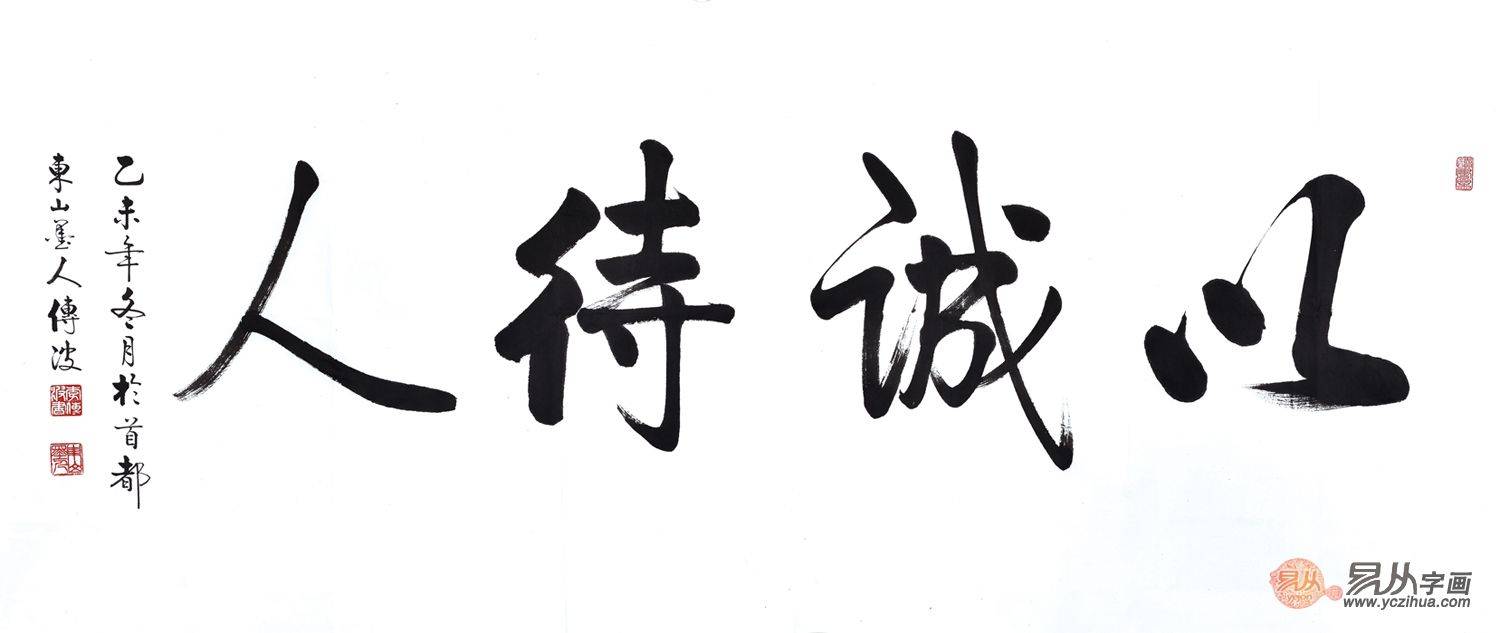 以誠待人
乙未年冬月於首都
東山墨人傳波
易从
yicon
易从字画
www.yczihua.com